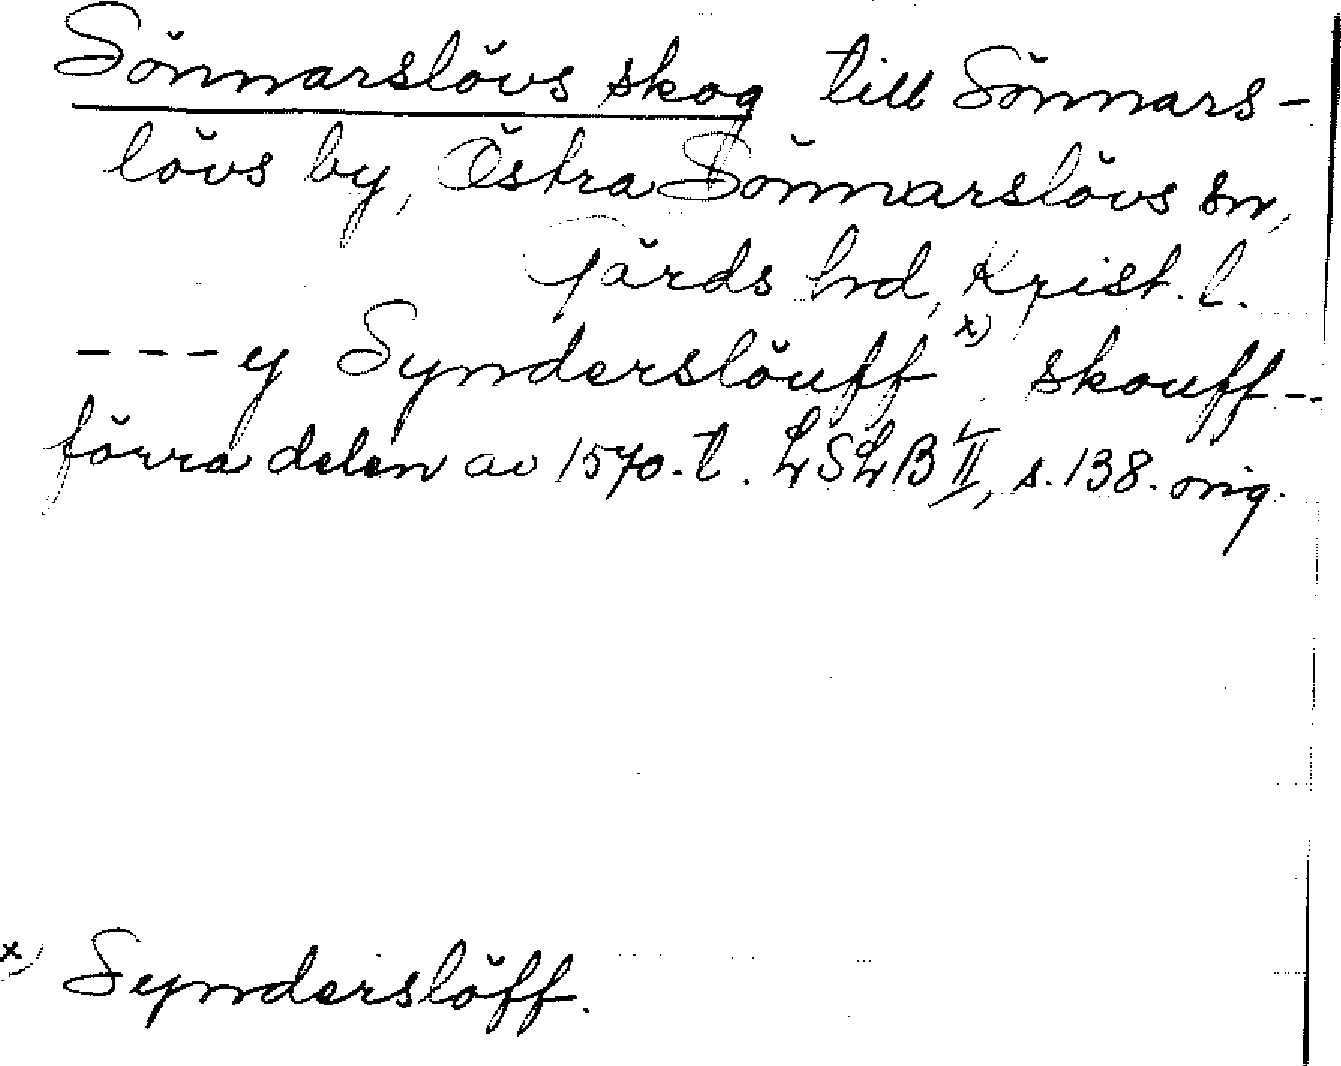 Sönnarslövs skog till Sönnars-
lövs by, Östra Sönnarslövs sn,
Gärds hrd, Krist. l.
---y Synderslöuff x) skouff--
förra delen av 1570-t. LSLB II, s. 138. orig.
x) Synderslöff.